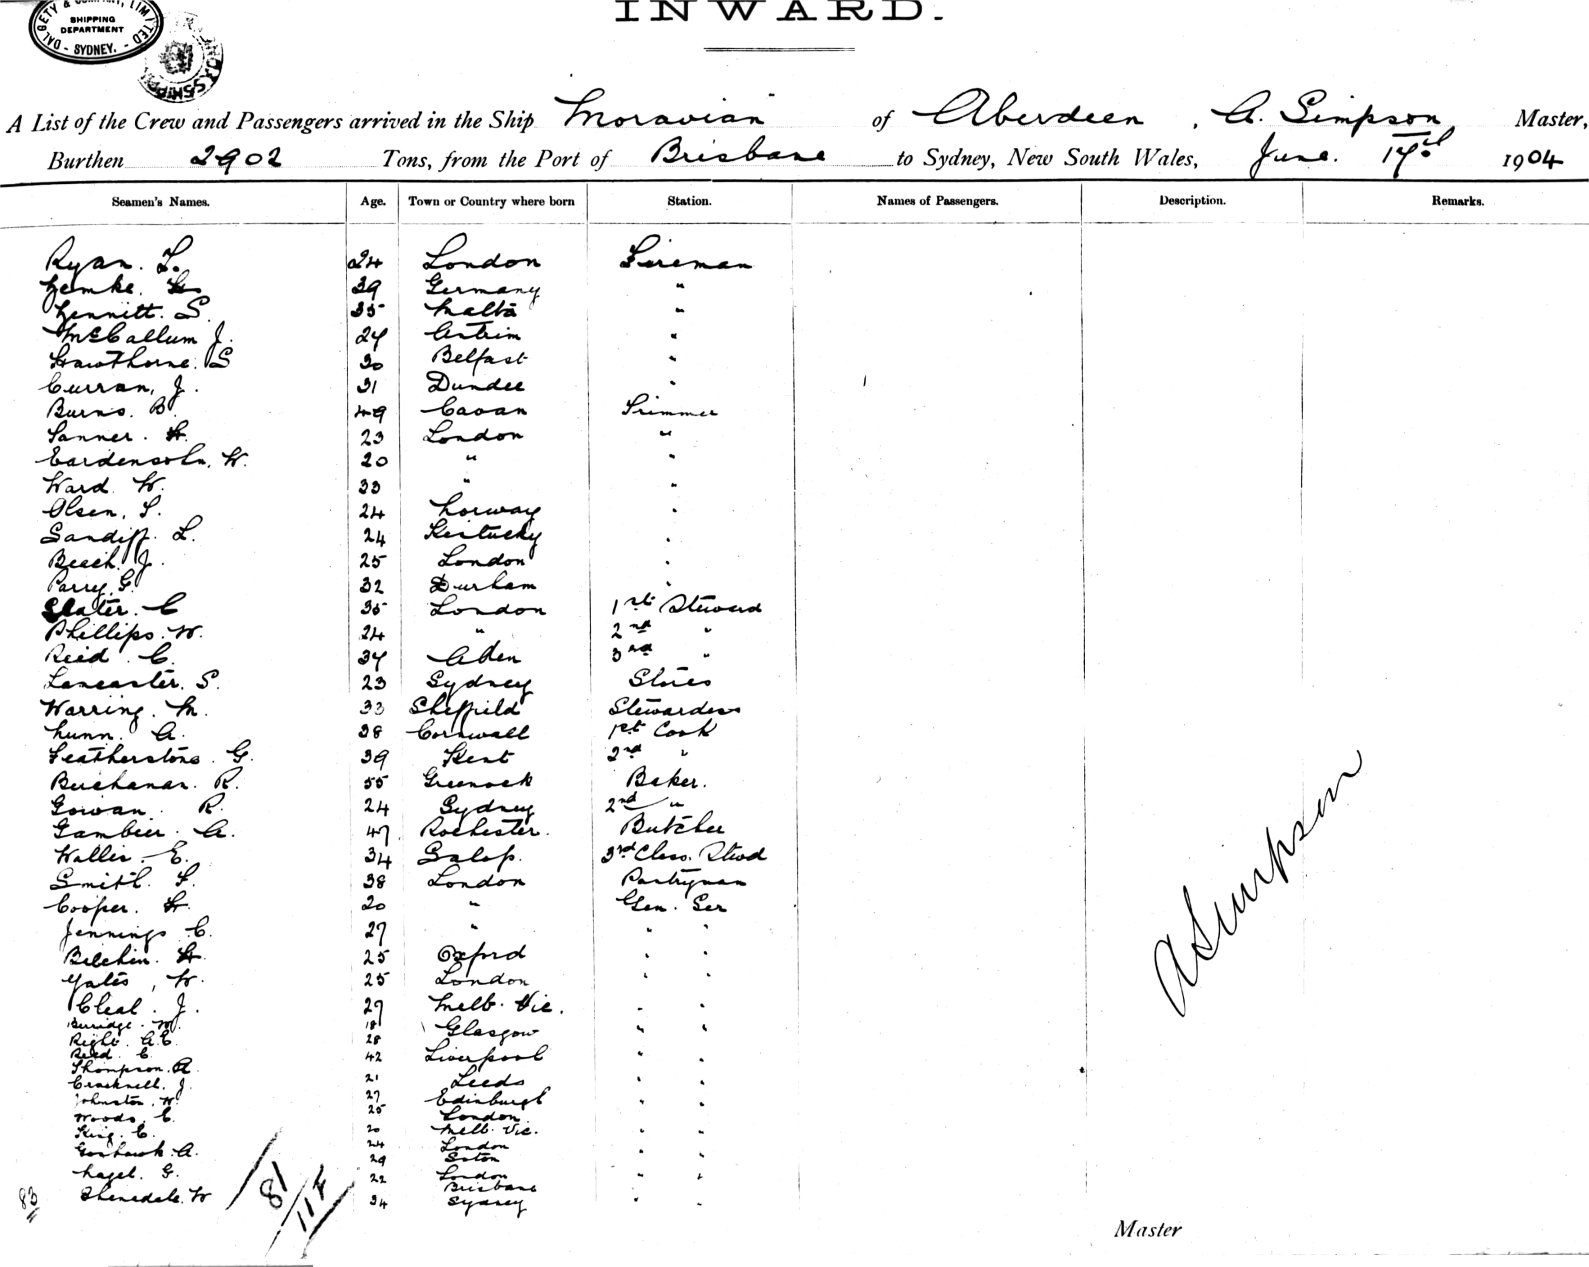 DALGETY & COMPANY, LIMITED
SHIPPING
DEPARTMENT
- SYDNEY. -
INWARD.
A List of the Crew and Passengers arrived in the Ship Moravian of Aberdeen, A. Simpson Master,
Burthen 2902 Tons, from the Port of Brisbane to Sydney, New South Wales, June. 17th 1904
Seamen's Names. Age. Town or Country where born Station. Names of Passengers. Description. Remarks.
Ryan. L. 24 London Fireman
39 Germany "
S. 35 Malta "
McCallum J. 27 Antrim "
Hawthorne. S 30 Belfast "
Curran, J. 31 Dundee "
Burns. B. 49 Cavan Trimmer
Tanner. H. 23 London "
W. 20 " "
Ward. W. 33 " "
Olsen. T. 24 Norway "
Sandiff. L. 24 Kentucky "
Beech. J. 25 London "
Parry. G. 32 Durham "
Slater. C 35 London 1st Steward
Phillips. W. 24 " 2nd "
Reid. C. 37 Aden 3rd "
Lancaster. S. 23 Sydney Stores
Warring. M. 33 Sheffield Stewardess
Nunn. A. 38 Cornwall 1st Cook
Featherstone. G. 39 Kent 2nd "
Buchanan. R. 55 Greenock Baker.
Gowan. R. 24 Sydney 2nd "
Gambier. A. 47 Rochester. Butcher
Wallis. E. 34 Salop. 3rd Class. Stwd
Smith. F. 38 London Pastryman
Cooper. H. 20 " Gen. Ser
Jennings. C. 27 " " "
Belchin. H. 25 Oxford " "
Yates, W. 25 London " "
Cleal. J. 27 Melb. Vic. " "
Burridge. W. 18 Glasgow " "
Right. A.E. 28
Reed. C. 42 Liverpool " "
Thompson. A.
Cracknell. J. 21 Leeds " "
Johnston. W. 27 Edinburgh " "
Woods. C. 25 London
King. C. 20 Melb. Vic. " "
Goshawk. A. 24 London " "
29
Nagel. G. 22 London " "
Brisbane
W 34 Sydney " "
83
81
11 F
A Simpson
Master